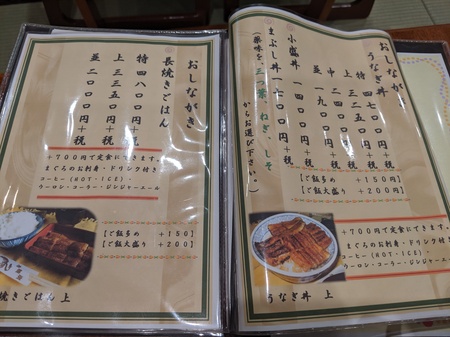 おしながき
長焼きごはん
特 四八〇〇円+税
上 三三五〇円+税
並 二〇〇〇円+税
+700円で定食にできます。
まぐろのお刺身・ドリンク付き
コーヒー(HOT・ICE)・
ウーロン・コーラ・ジンジャーエール
【ご飯多め +150】
【ご飯大盛り +200】
焼きごはん 上
おしながき
うなぎ丼
特 四七〇〇円+税
上 三二五〇円+税
中 二四〇〇円+税
並 一九〇〇円+税
小盛丼 一四〇〇円+税
まぶし丼 一七〇〇円+税
(薬味を、三つ葉・ねぎ・しそ
からお選び下さい。)
【ご飯多め +150円】
【ご飯大盛り +200円】
+700円で定食にできます。
まぐろのお刺身・ドリンク付き
コーヒー(HOT・ICE)・
ウーロン・コーラ・ジンジャーエール
うなぎ丼 上